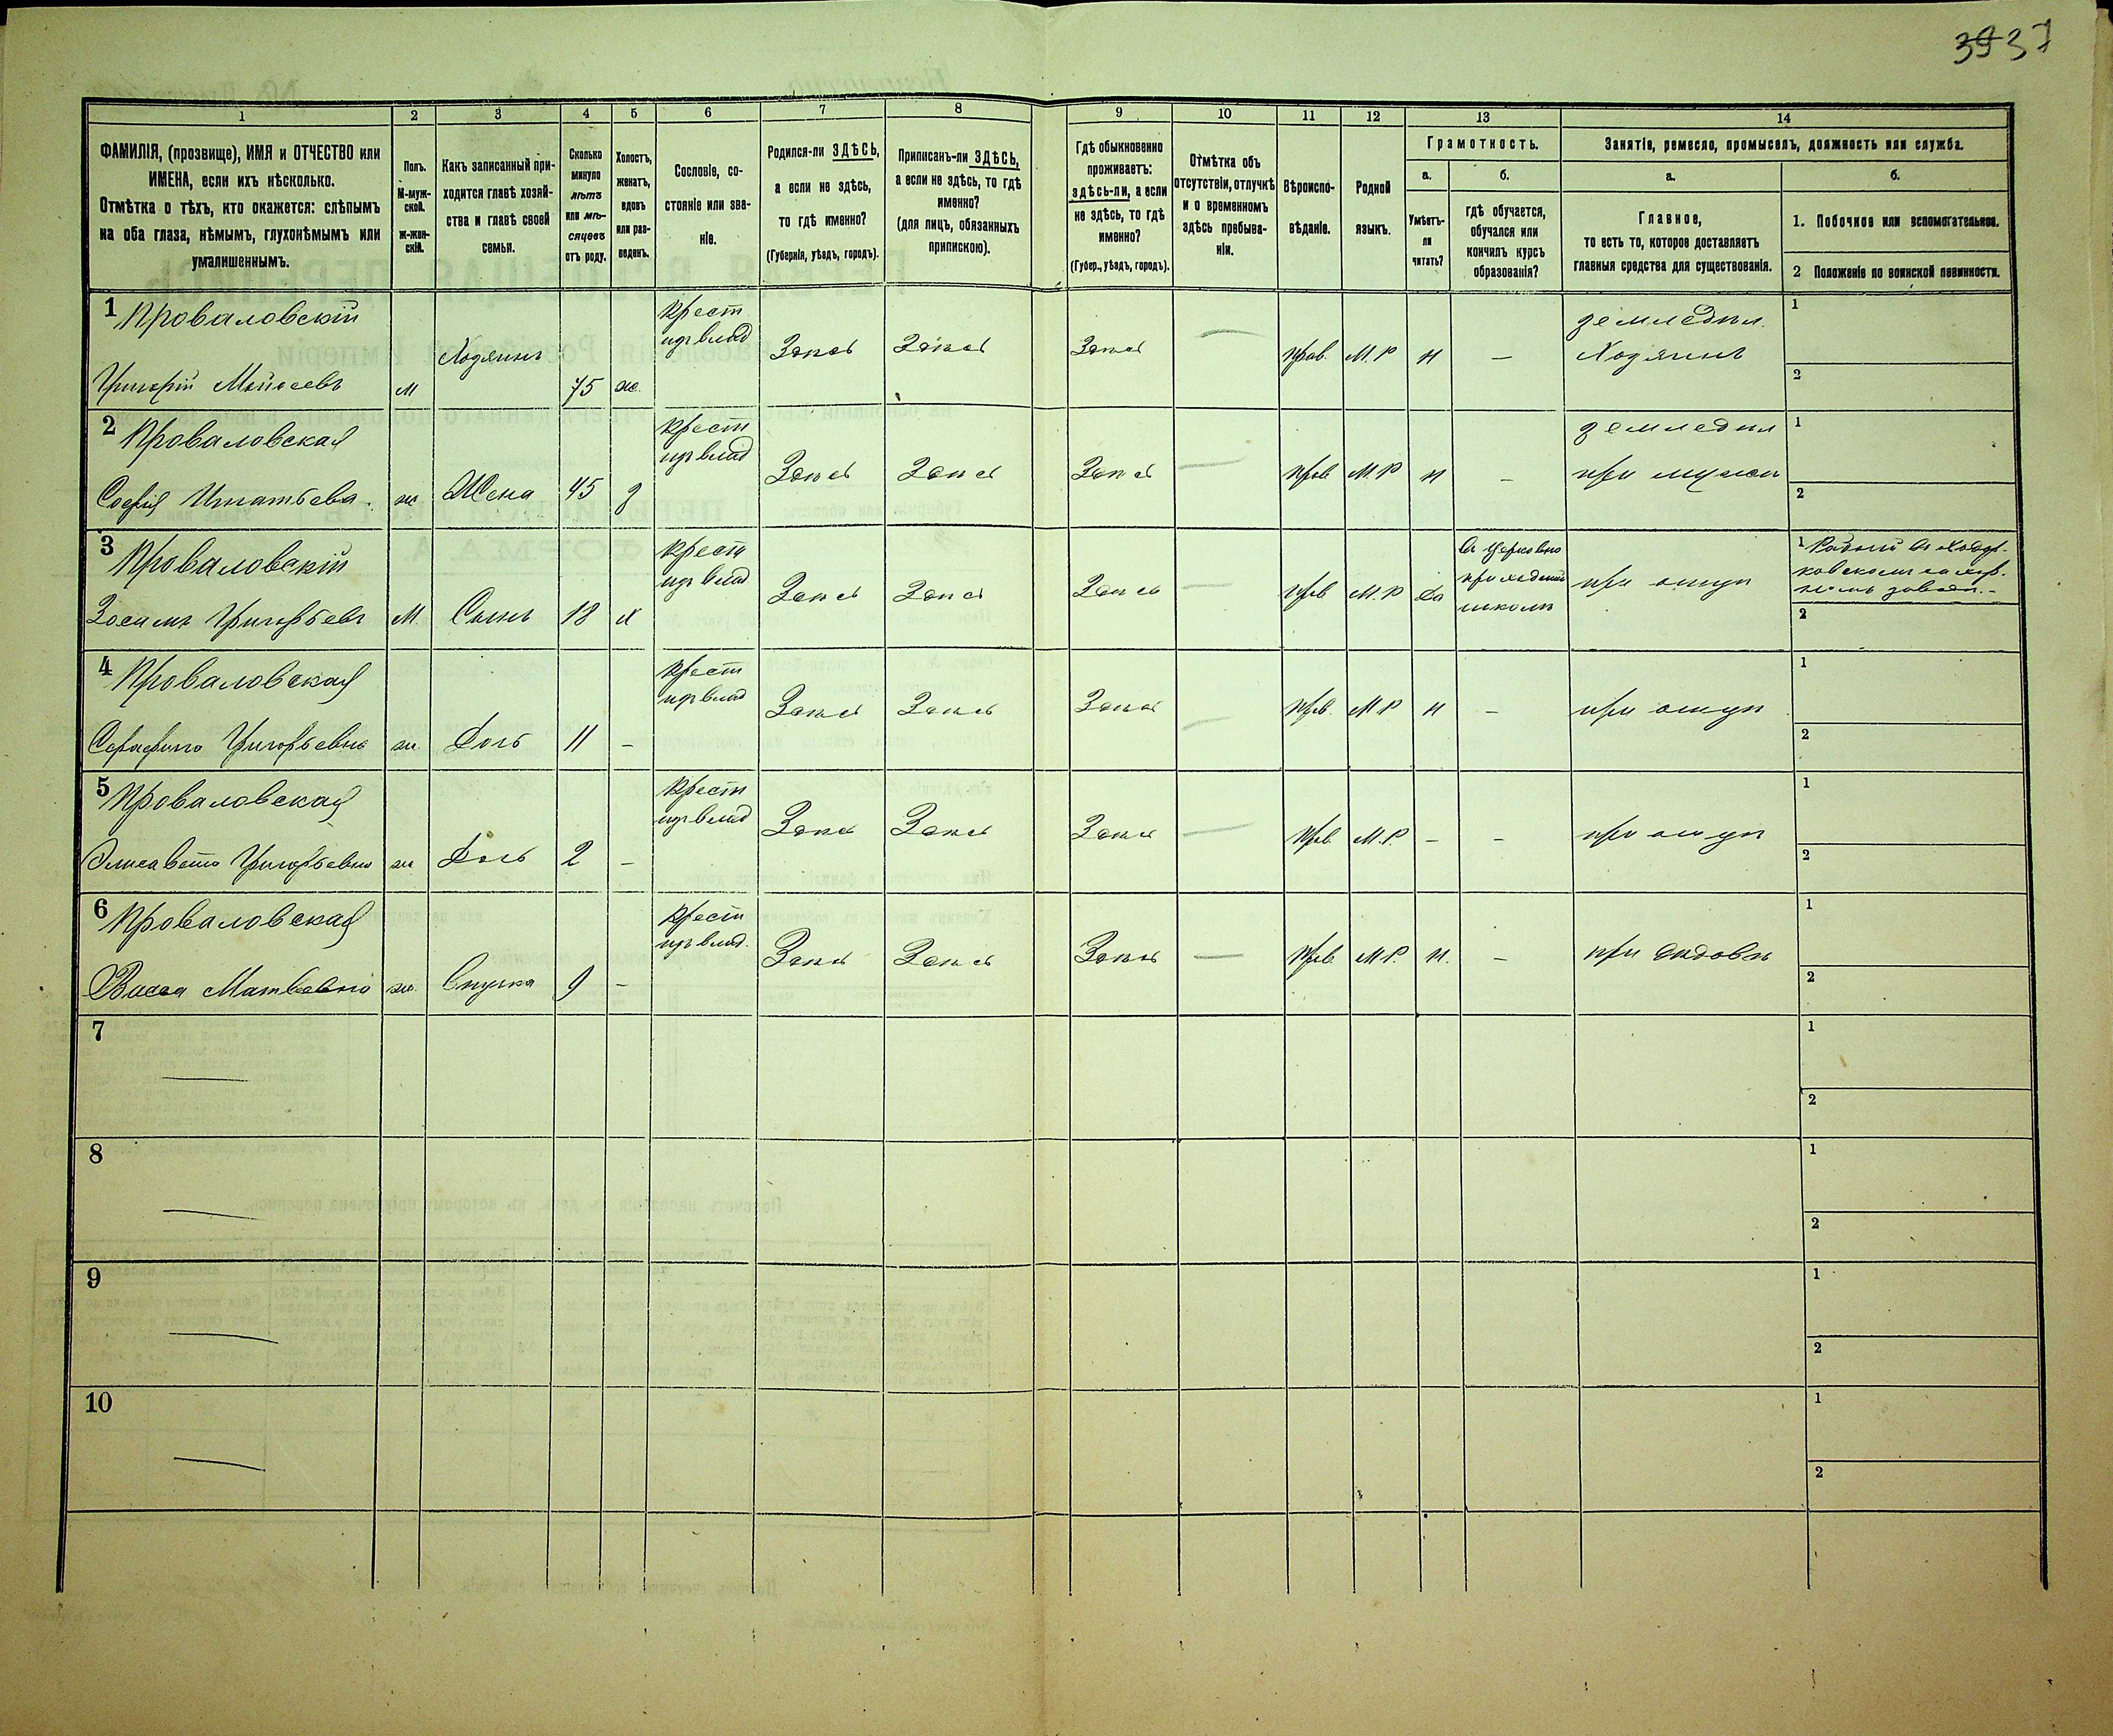 39 37
1 2 3 4 5 6 7 8 9 10 11 12 13 14
ФАМИЛІЯ, (прозвище), ИМЯ и ОТЧЕСТВО или
ИМЕНА, если ихъ нѣсколько.
Отмѣтка о тѣхъ, кто окажется: слѣпымъ
на оба глаза, нѣмымъ, глухонѣмымъ или
умалишеннымъ.
Полъ.
М-муж-
ской.
ж-жен-
скій.
Какъ записанный при-
ходится главѣ хозяй-
ства и главѣ своей
семьи.
Сколько
минуло
лѣтъ
или мѣ-
сяцевъ
отъ роду.
Холостъ,
женатъ,
вдовъ
или раз-
веденъ.
Сословіе, со-
стояніе или зва-
ніе.
Родился-ли ЗДѢСЬ,
а если не здѣсь,
то гдѣ именно?
(Губернія, уѣздъ, городъ).
Приписанъ-ли ЗДѢСЬ,
а если не здѣсь, то гдѣ
именно?
(для лицъ, обязанныхъ
припискою).
Гдѣ обыкновенно
проживаетъ:
здѣсь-ли, а если
не здѣсь, то гдѣ
именно?
(Губер., уѣздъ, городъ).
Отмѣтка объ
отсутствіи, отлучкѣ
и о временномъ
здѣсь пребыва-
ніи.
Вѣроиспо-
вѣданіе.
Родной
языкъ.
Грамотность.
а.
Умѣетъ-
ли
читать?
б.
гдѣ обучается,
обучался или
кончилъ курсъ
образованія?
Занятіе, ремесло, промыселъ, должность или служба.
а.
Главное,
то есть то, которое доставляетъ
главныя средства для существованія.
б.
1. Побочное или вспомогательное.
2 Положеніе по воинской повинности.
1 Проваловскій
Григорій Мойсеевъ
м
Хозяинъ
75
ж.
крест
изъ влад
Здѣсь
Здѣсь
Здѣсь
—
прав.
М. Р
н
—
земледѣл.
Хозяинъ
1
2
2 Проваловская
Софія Игнатьева.
ж
Жена
45
з
крест
изъ влад
Здѣсь
Здѣсь
Здѣсь
—
прав
М. Р
н
—
земледѣл
при мужѣ
1
2
3 Проваловскій
Зосимъ Григорьевъ
М.
Сынъ
18
х
крест
изъ влад
Здѣсь
Здѣсь
Здѣсь
—
прав
М. Р
да
въ церковно
приходской
школѣ
при отцѣ
1
2
4 Проваловская
Серафима Григорьевна
ж.
Дочь
11
—
крест
изъ влад
Здѣсь
Здѣсь
Здѣсь
—
прав.
М Р
н
—
при отцѣ
1
2
5 Проваловская
Елисавета Григорьевна
ж
Дочь
2
—
крест
изъ влад
Здѣсь
Здѣсь
Здѣсь
—
прав.
М. Р.
—
—
при отцѣ
1
2
6 Проваловская
Васса Матвѣевна
ж.
Внучка
9
—
крест
изъ влад.
Здѣсь
Здѣсь
Здѣсь
—
прав.
М Р.
н.
—
при дѣдовѣ
1
2
7
—
1
2
8
—
1
2
9
—
1
2
10
—
1
2